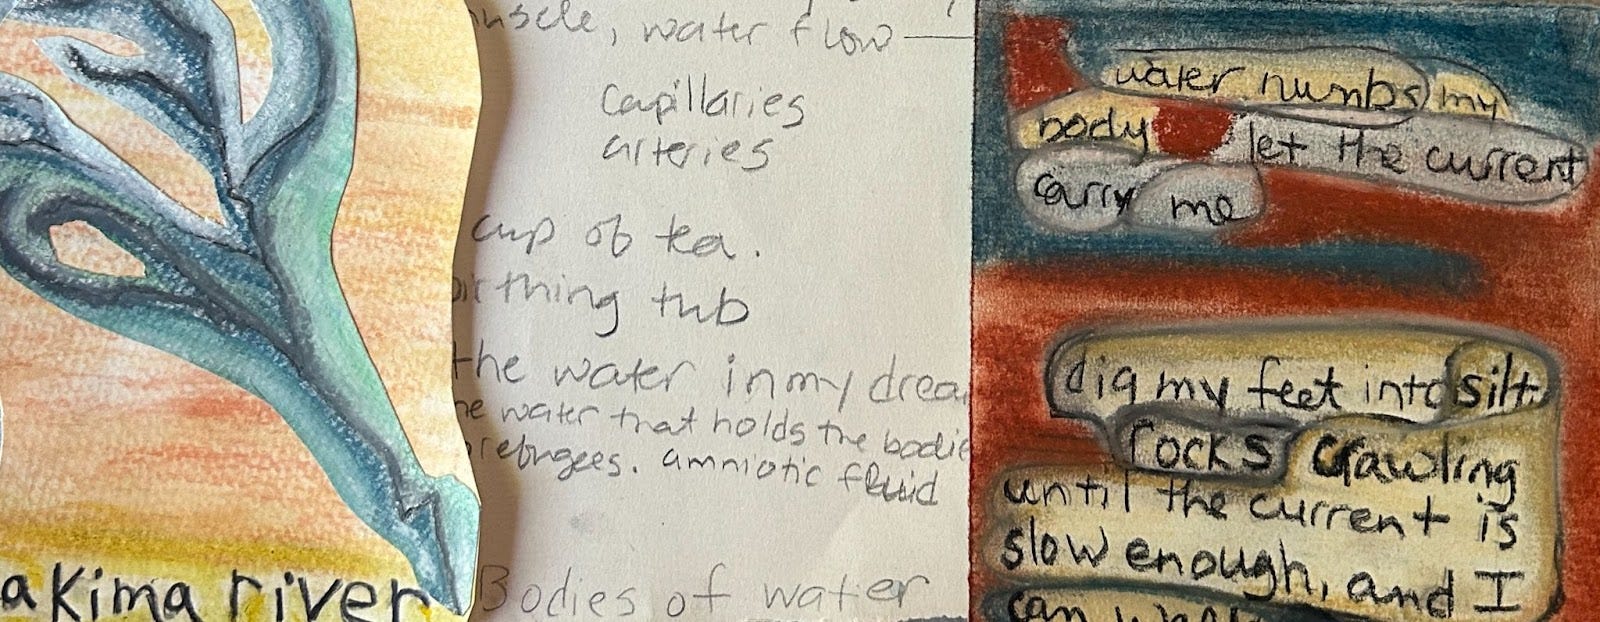 akima river
uscle, water flow —
capillaries
arteries
cup of tea.
birthing tub
the water in my drea
he water that holds the bodie
refugees. amniotic fluid
Bodies of water
water numbs my
body let the current
carry me
dig my feet into silt.
rocks crawling
until the current is
slow enough, and I
can